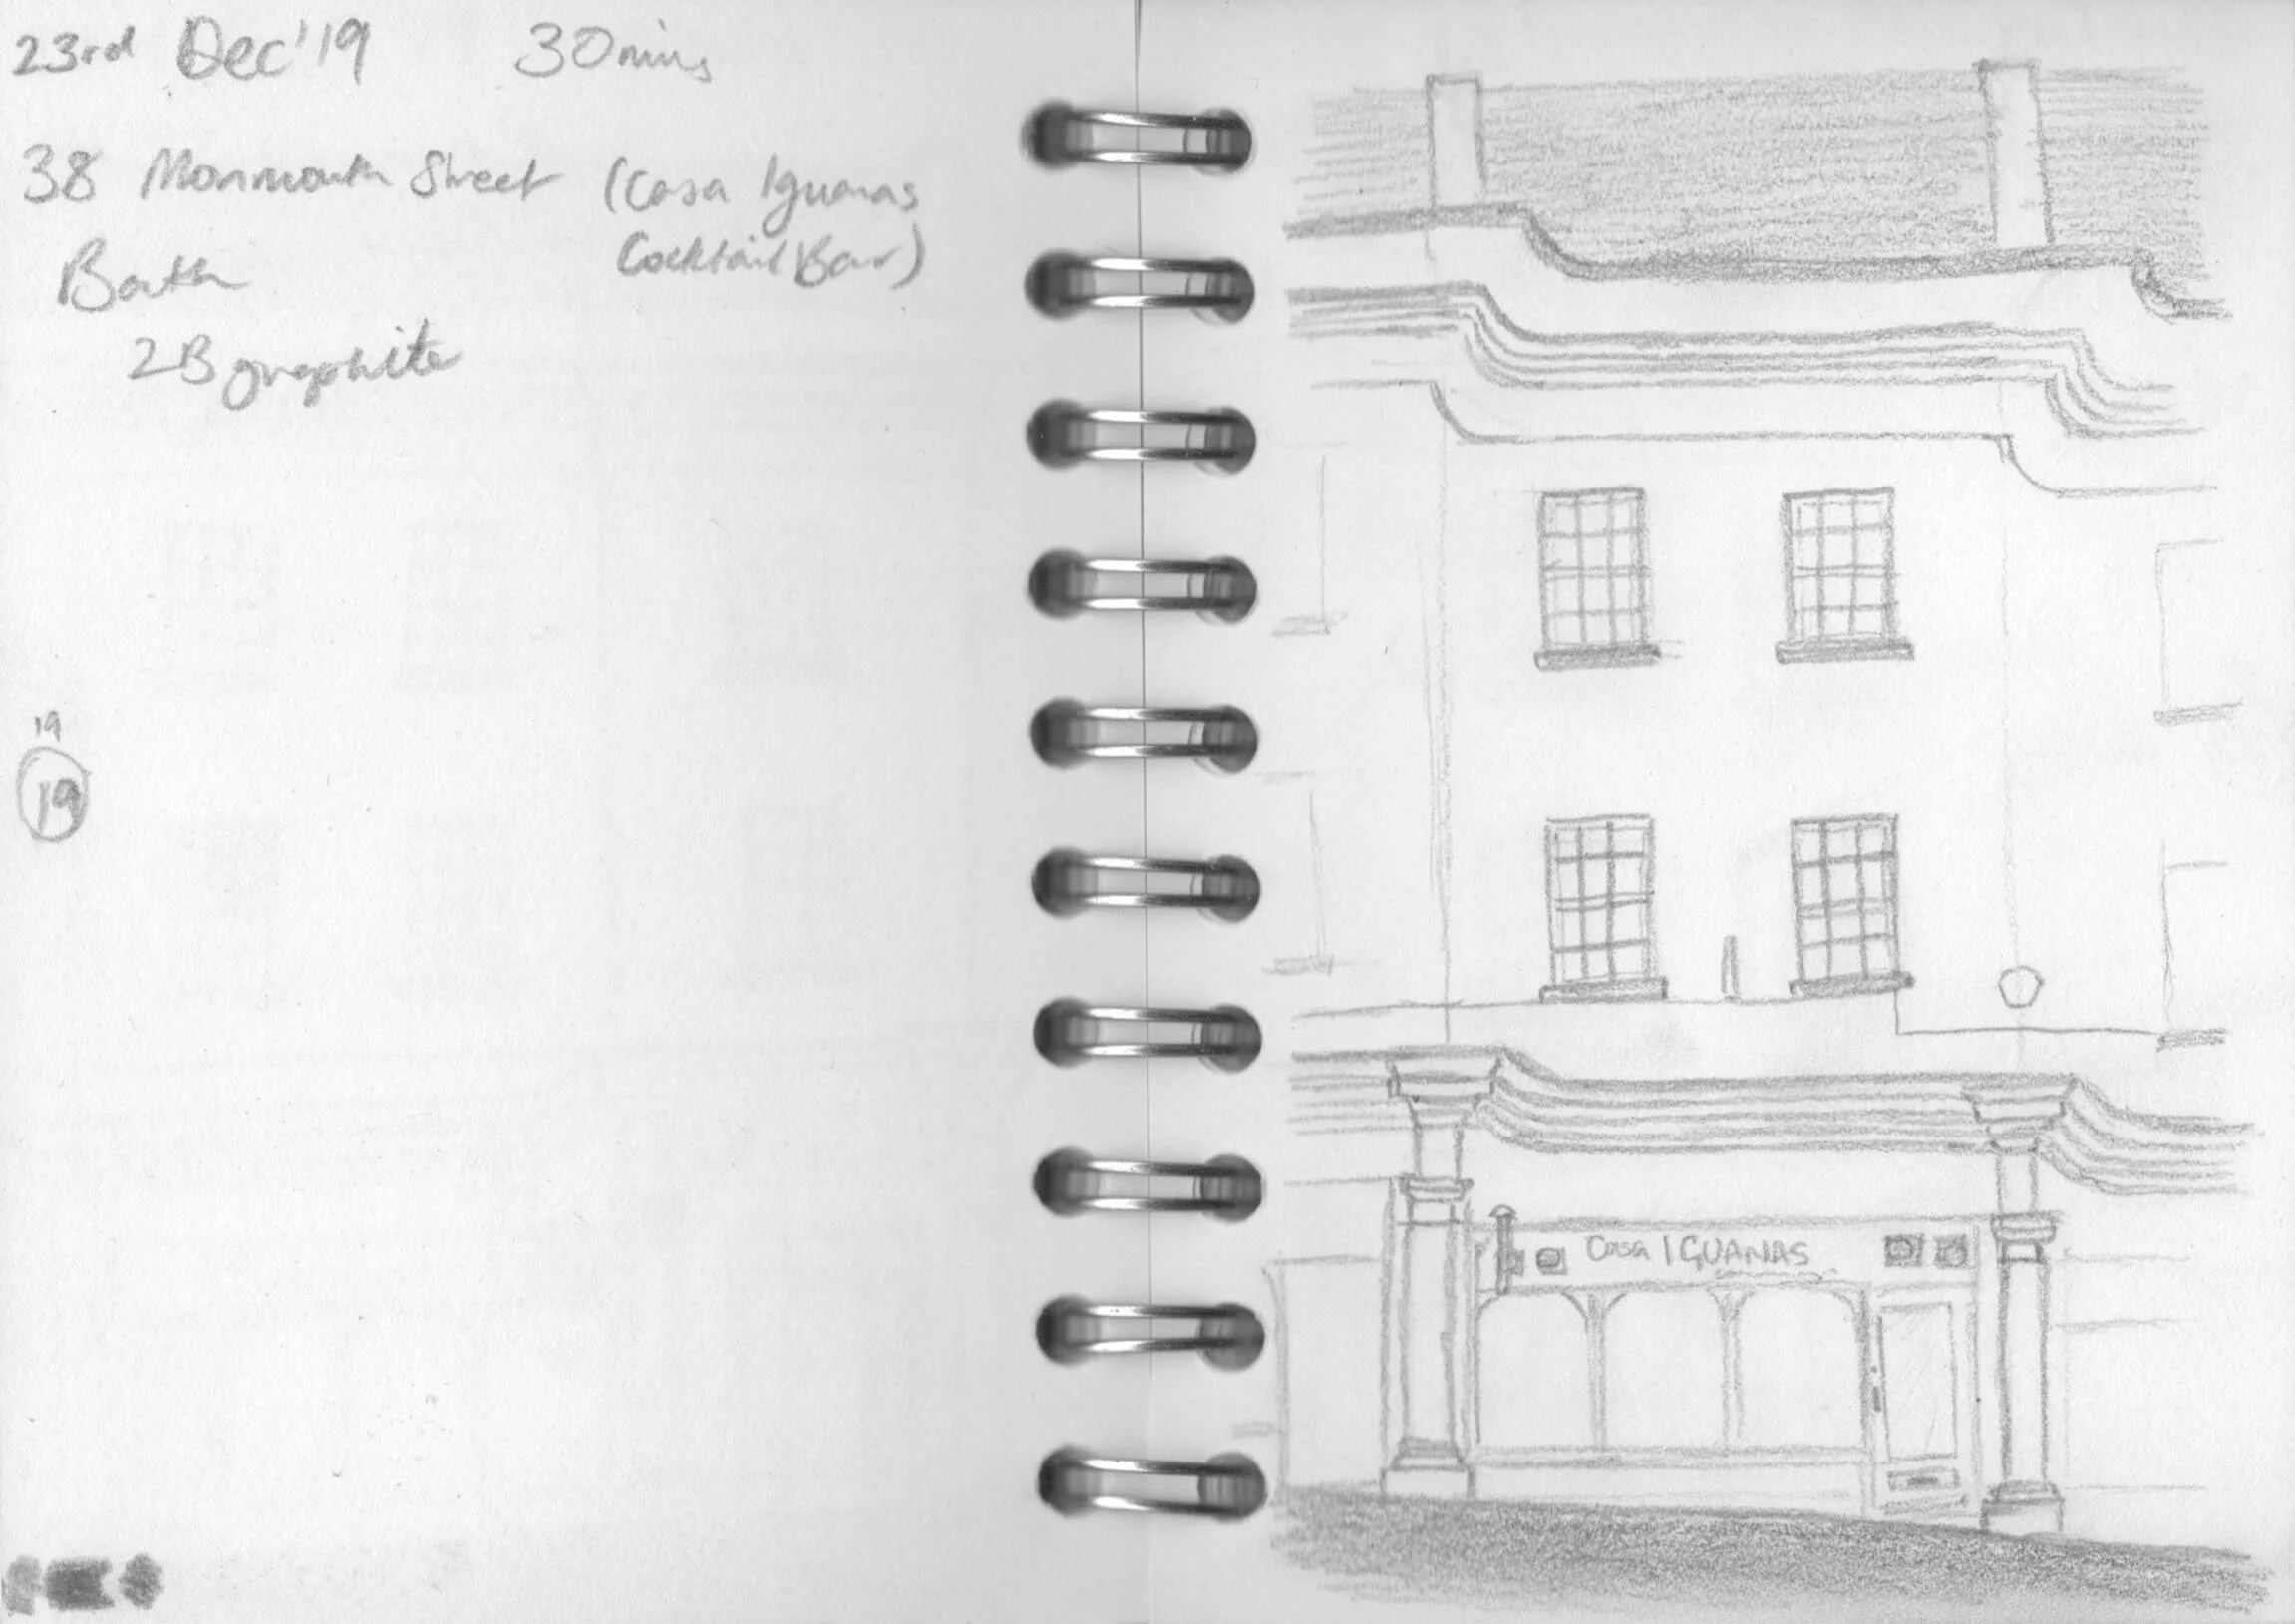 23rd Dec'19 30mins
38 Monmouth Street (Casa Iguanas
Cocktail Bar)
Bath
2B graphite
19
19
Casa IGUANAS